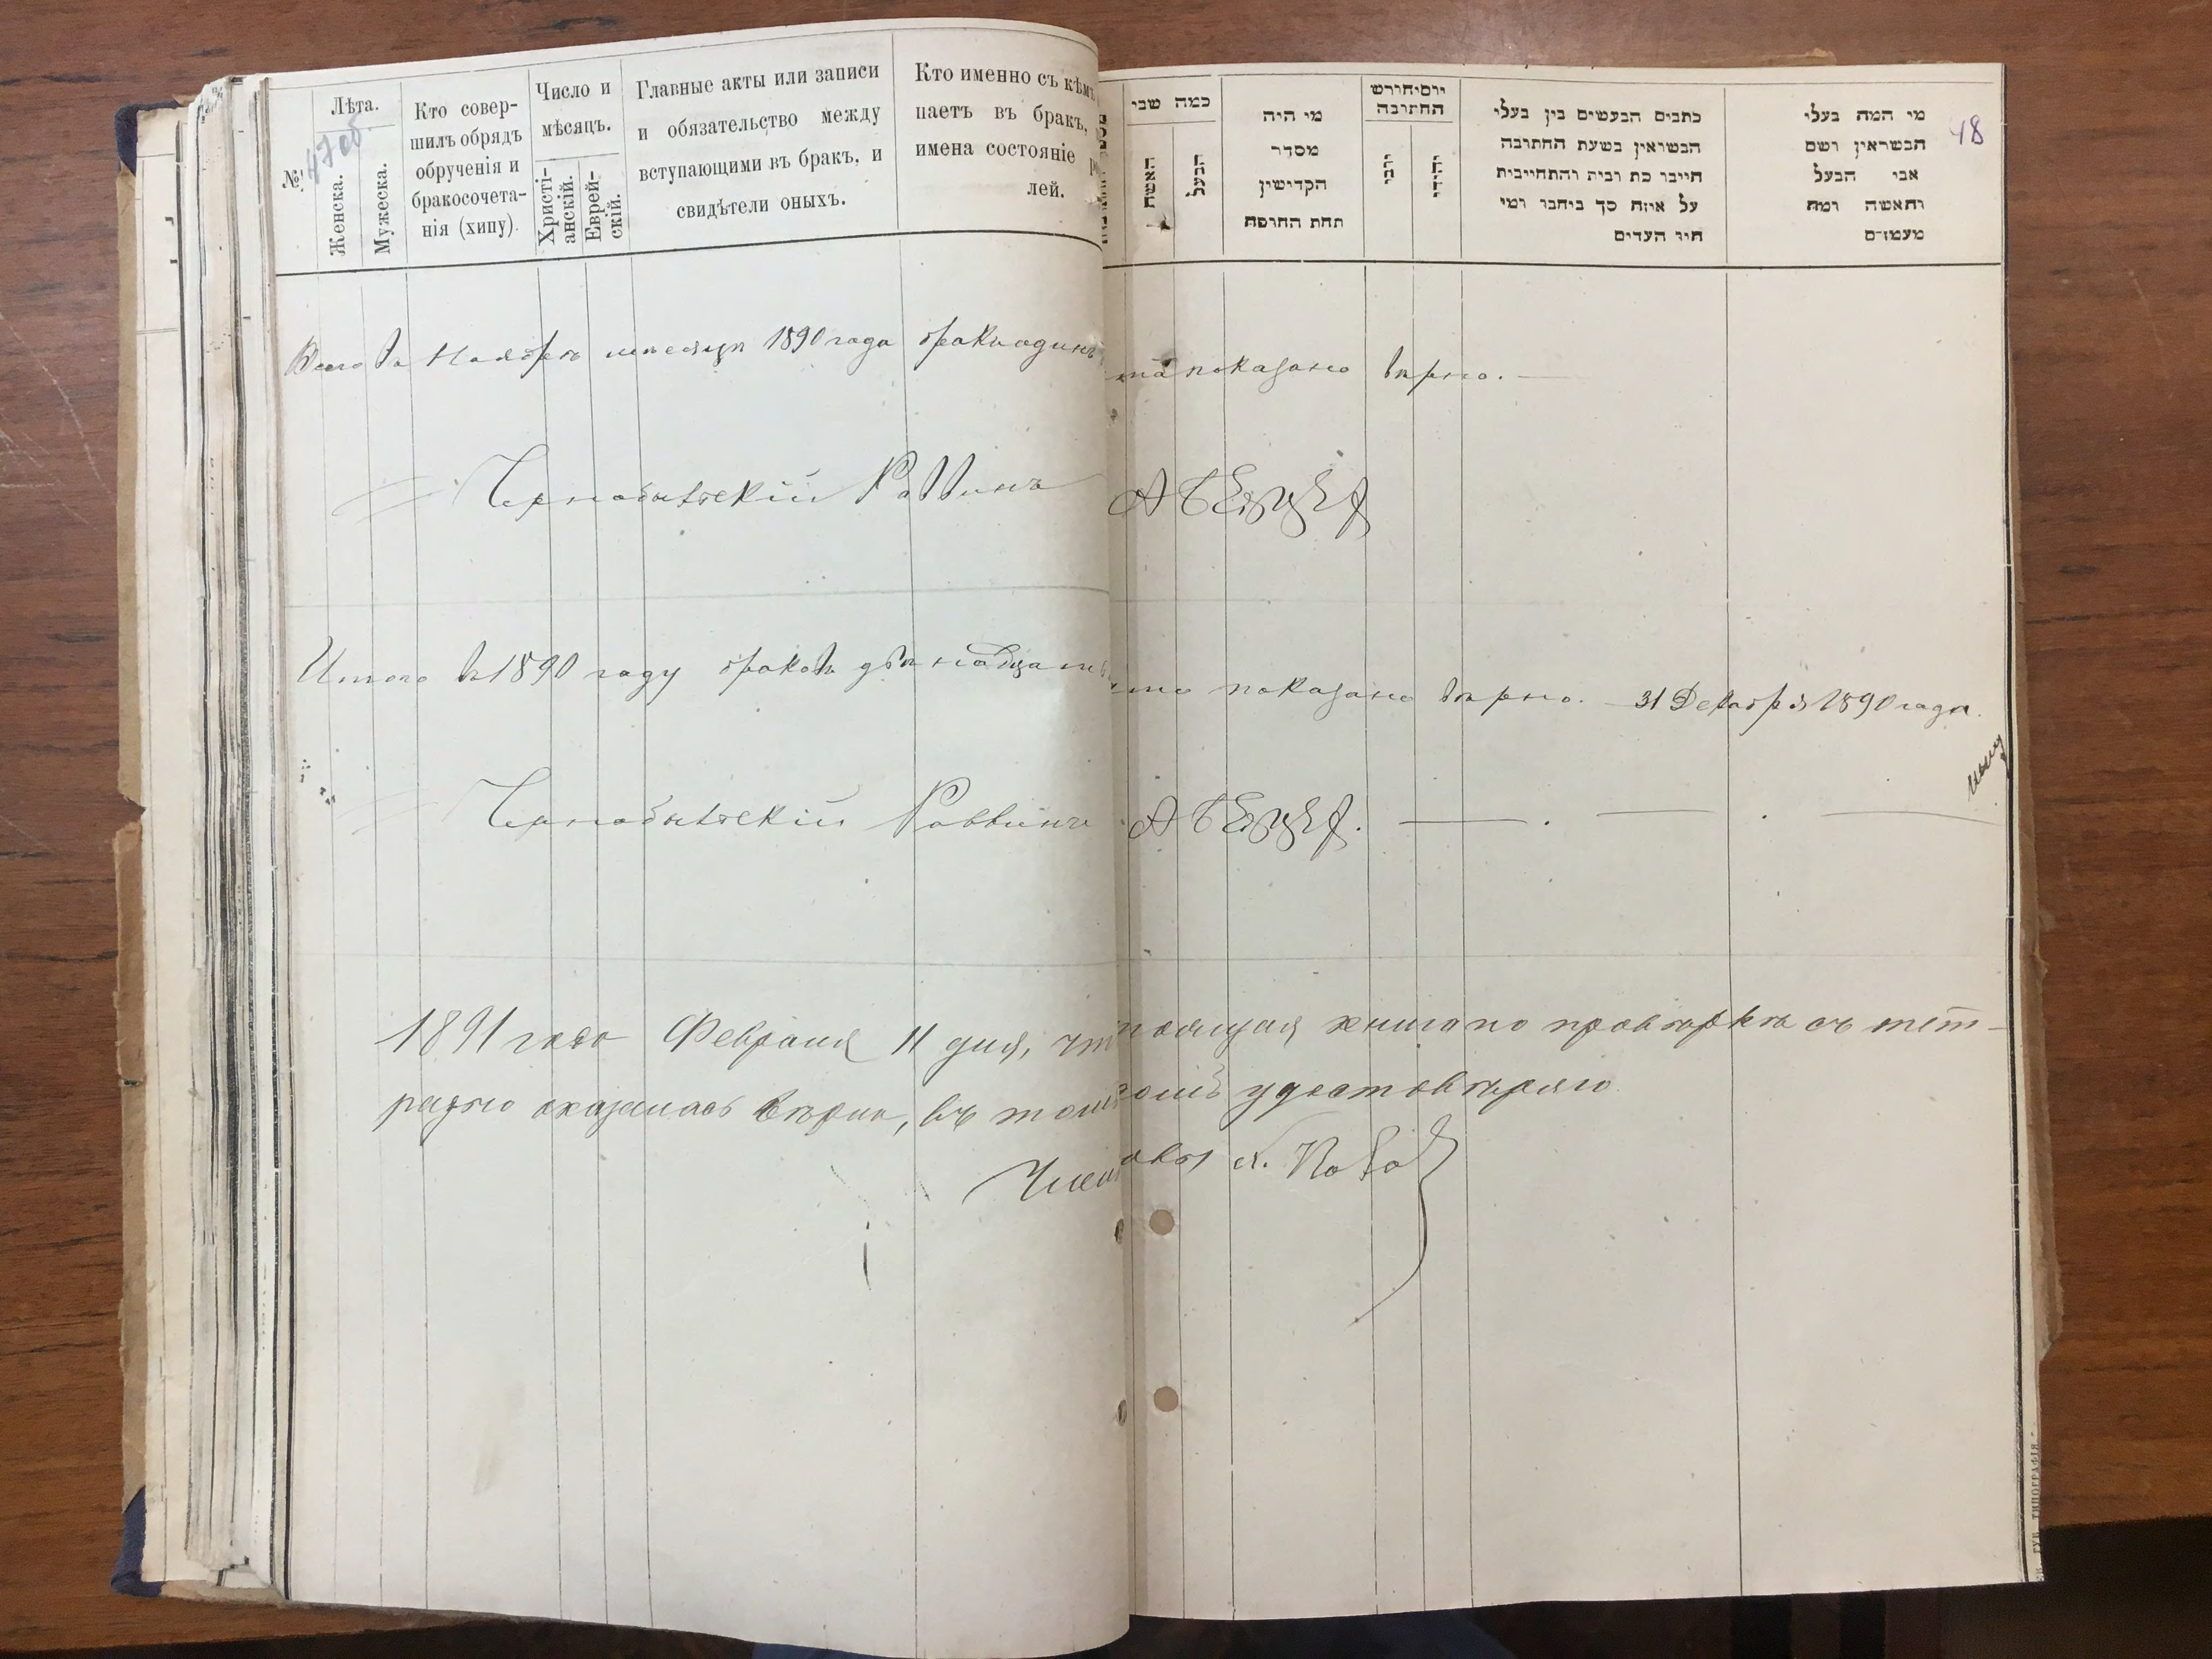 №
47об.
Лѣта.
Женска.
Мужеска.
Кто совер-
шилъ обрядъ
обрученія и
бракосочета-
нія (хипу).
Число и
мѣсяцъ.
Христі-
анскій.
Еврей-
скій.
Главные акты или записи
и обязательство между
вступающими въ бракъ, и
свидѣтели оныхъ.
Кто именно съ кѣмъ
паетъ въ бракъ,
имена состояніе р
лей.
כמה שני
האשה
הבעל
מי היה
מסדר
הקדישין
תחת החופה
החתובה
יהודי
כתבים הנעשים בין בעלי
הנשואין בשעת החתובה
חייבו כת ובית והתחייבית
על איזה סך ביחבו ומי
היו העדים
מי המה בעלי
הנשואין ושם
אבי הבעל
והאשה ומה
מעמדם
48
Всего въ Ноябрѣ мѣсяцѣ 1890 года бракъ одинъ показано вѣрно. —
Чернобыльскій Раввинъ
Итого въ 1890 году браковъ двѣнадцать что показано вѣрно. 31 Декабря 1890 года.
Чернобыльскій Раввинъ
1891 года Февраля 11 дня, настоящая книга по провѣркѣ съ тет-
радью оказалась вѣрна, въ томъ удостовѣряю
ГУБ. ТИПОГРАФІЯ